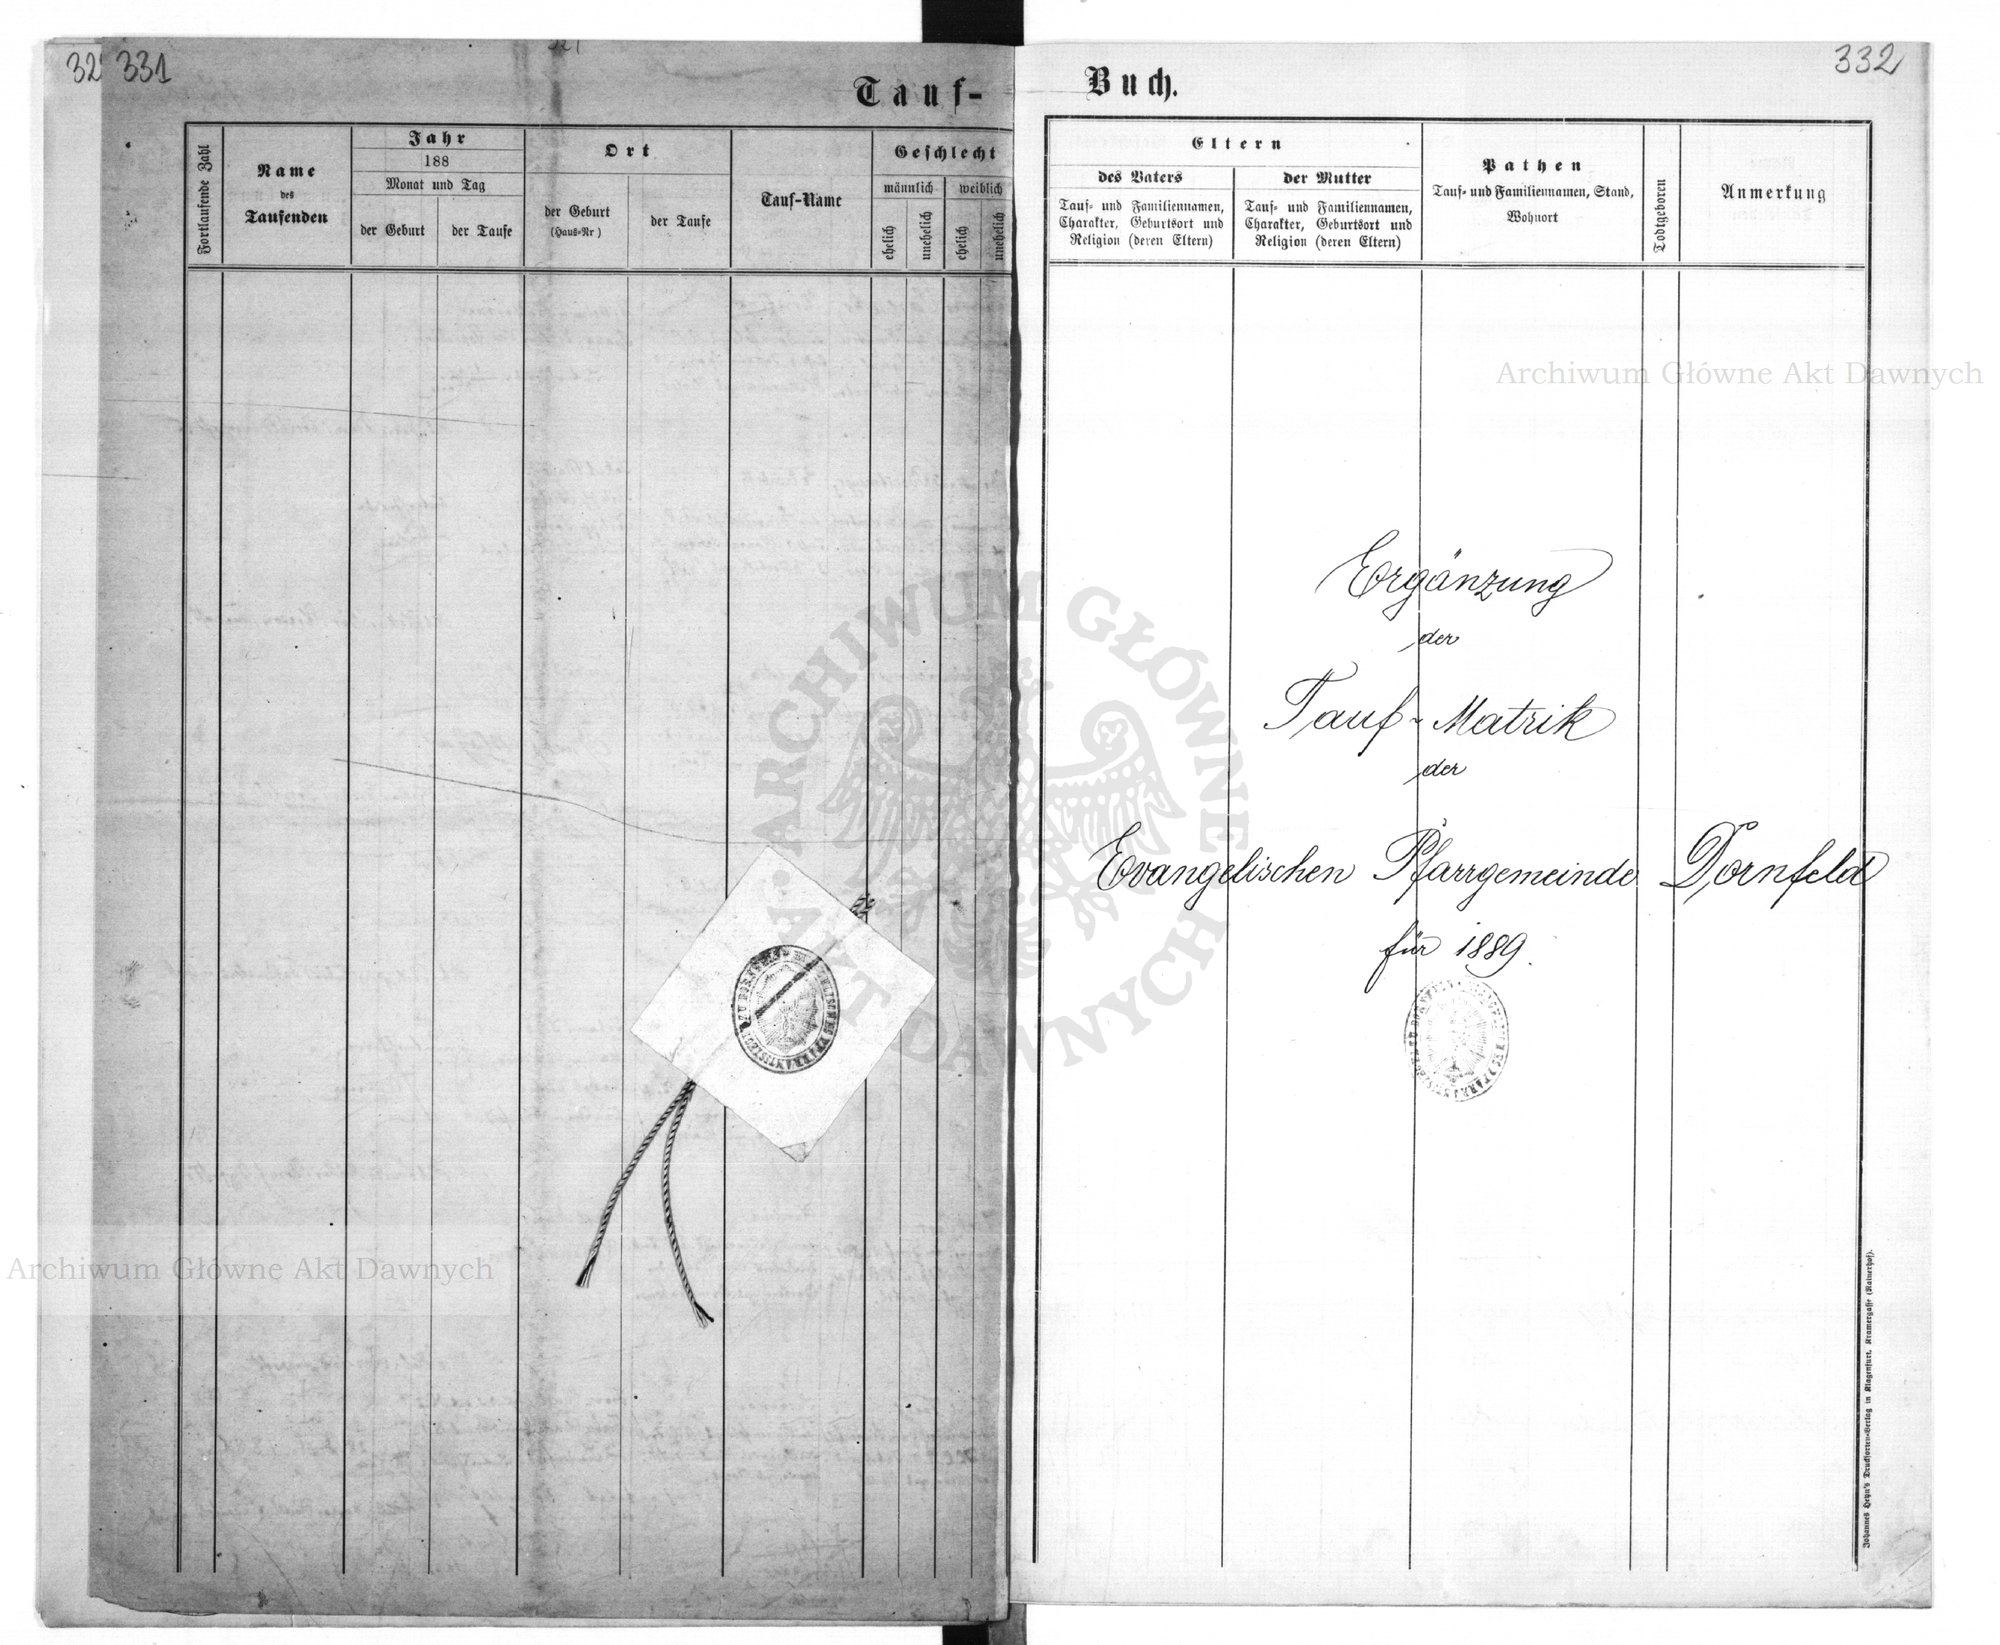 32
331
332
Tauf-
Buch.
Fortlaufende Zahl
Name
des
Taufenden
Jahr
188
Monat und Tag
der Geburt
der Taufe
Ort
der Geburt
(Haus-Nr)
der Taufe
Tauf-Name
Geschlecht
männlich
weiblich
ehelich
unehelich
ehelich
unehelich
Eltern
des Vaters
Tauf- und Familiennamen,
Charakter, Geburtsort und
Religion (deren Eltern)
der Mutter
Tauf- und Familiennamen,
Charakter, Geburtsort und
Religion (deren Eltern)
Pathen
Tauf- und Familiennamen, Stand,
Wohnort
Todtgeboren
Anmerkung
Ergänzung
der
Tauf-Matrik
der
Evangelischen Pfarrgemeinde Dornfeld
für 1889.
Johannes Heyn's Drucksorten-Verlag in Klagenfurt, Kramergasse (Rainerhof).
Archiwum Główne Akt Dawnych
Archiwum Główne Akt Dawnych
ARCHIWUM GŁÓWNE AKT DAWNYCH